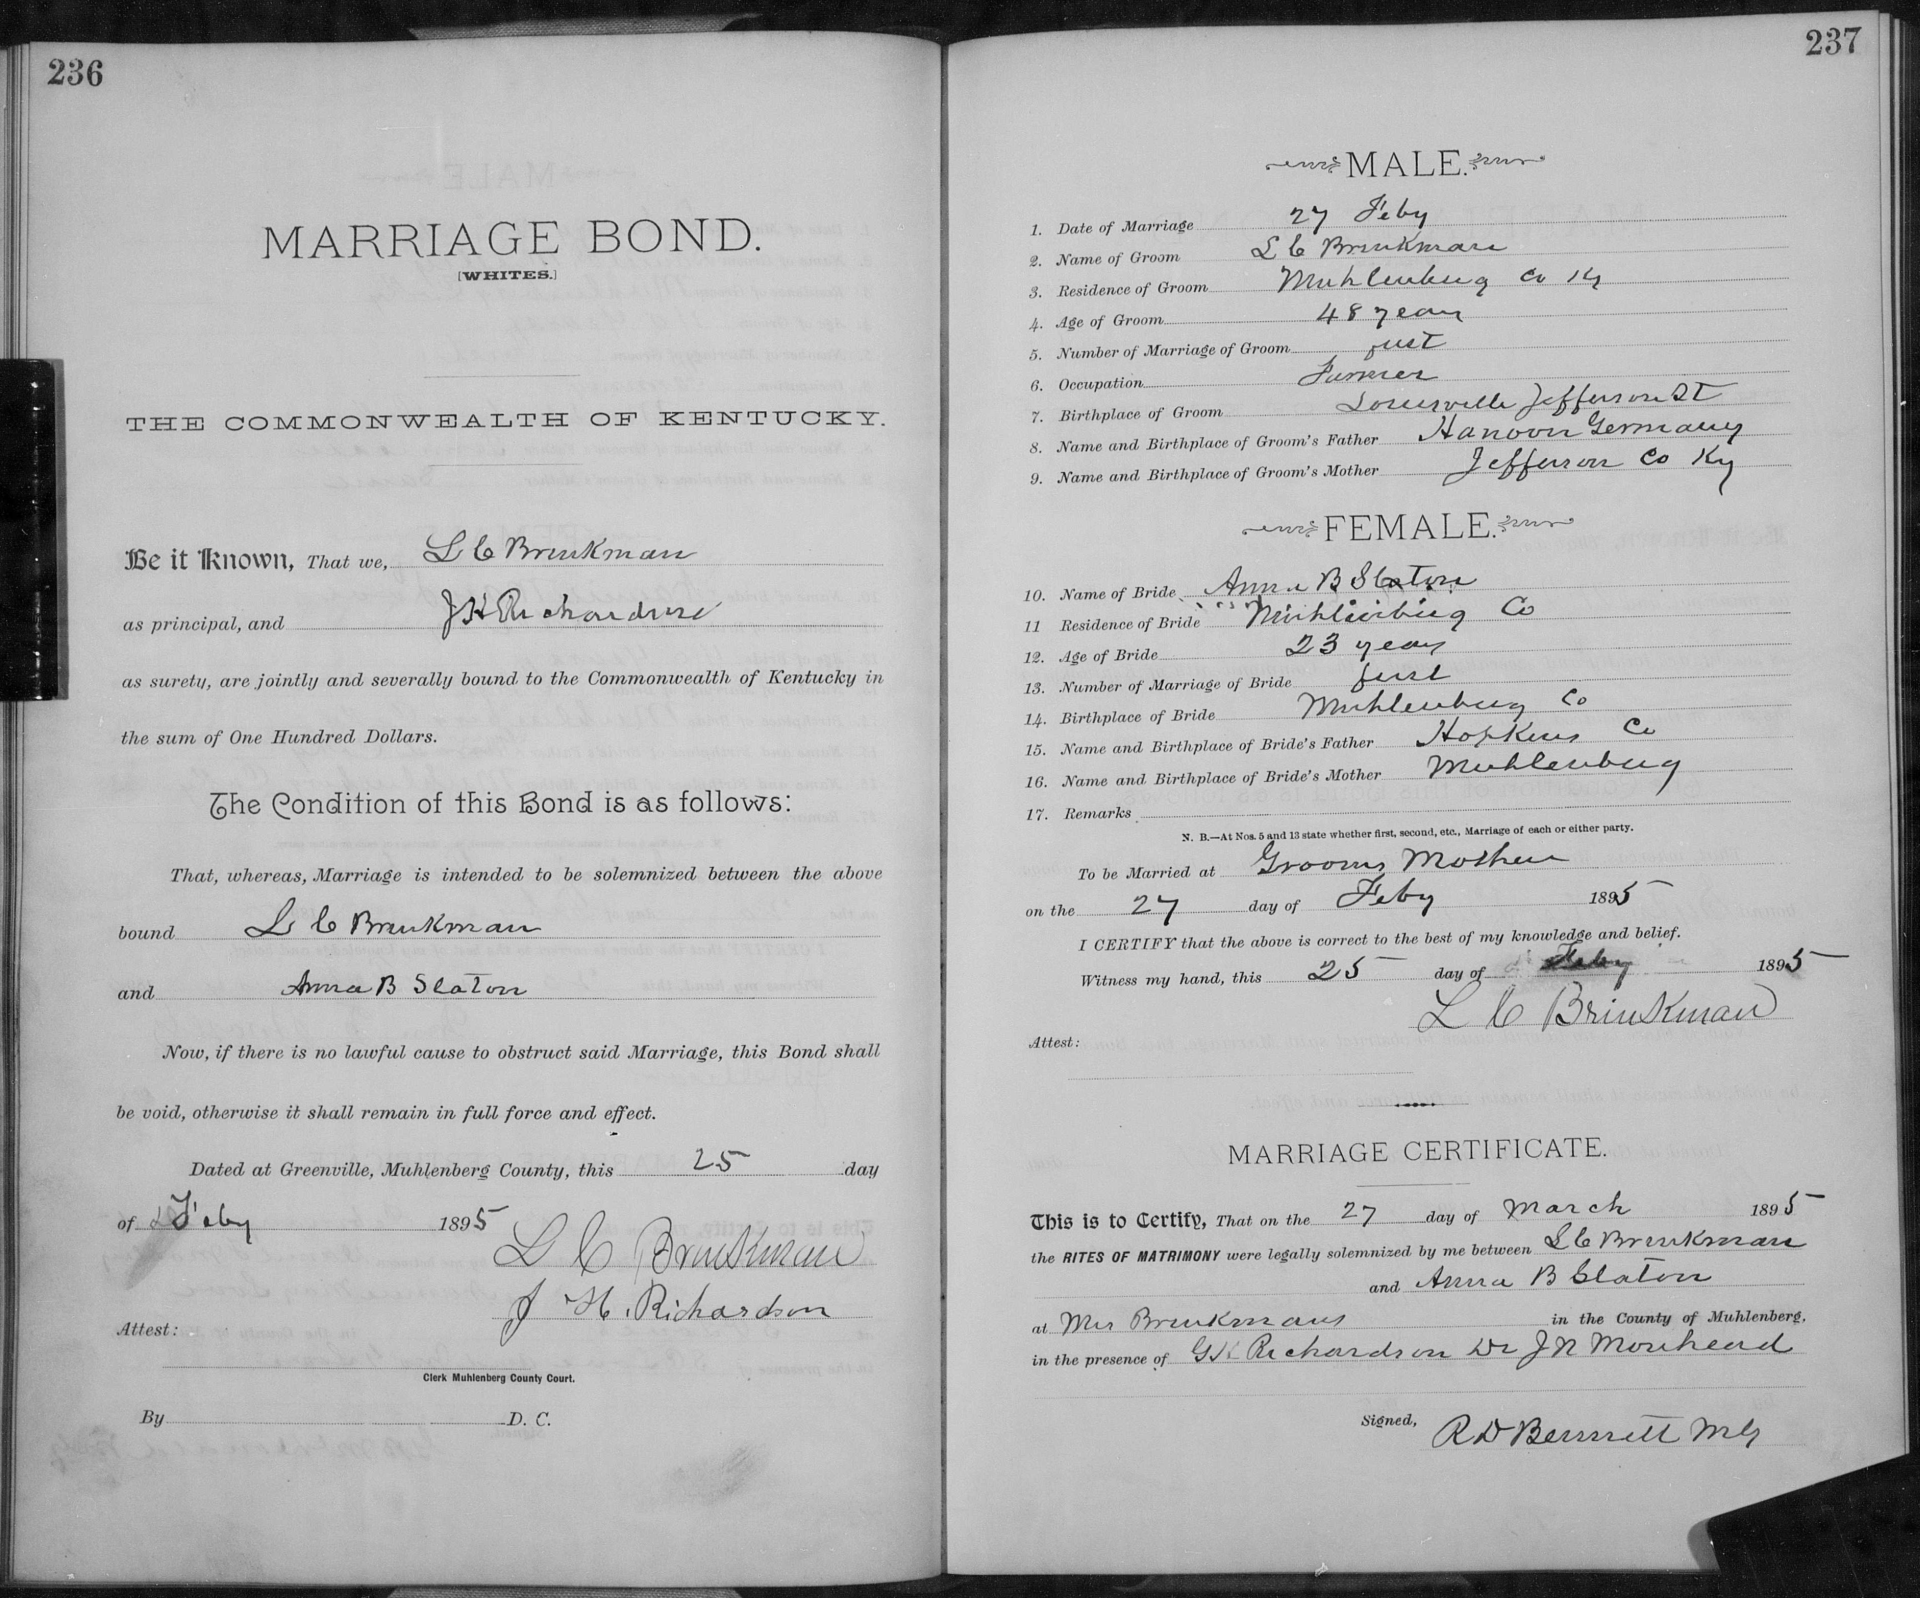 236
MARRIAGE BOND.
[WHITES.]
THE COMMONWEALTH OF KENTUCKY.
Be it Known, That we, L C Brinkman
as principal, and J H Richardson
as surety, are jointly and severally bound to the Commonwealth of Kentucky in
the sum of One Hundred Dollars.
The Condition of this Bond is as follows:
That, whereas, Marriage is intended to be solemnized between the above
bound L C Brinkman
and Anna B Slaton
Now, if there is no lawful cause to obstruct said Marriage, this Bond shall
be void, otherwise it shall remain in full force and effect.
Dated at Greenville, Muhlenberg County, this 25 day
of Feby 1895
L C Brinkman
J H. Richardson
Attest:
Clerk Muhlenberg County Court.
By D. C.
237
MALE.
1. Date of Marriage 27 Feby
2. Name of Groom L C Brinkman
3. Residence of Groom Muhlenburg Co Ky
4. Age of Groom 48 years
5. Number of Marriage of Groom first
6. Occupation Farmer
7. Birthplace of Groom Louisville Jefferson St
8. Name and Birthplace of Groom's Father Hanover Germany
9. Name and Birthplace of Groom's Mother Jefferson Co Ky
FEMALE.
10. Name of Bride Anna B Slaton
11 Residence of Bride Muhlenburg Co
12. Age of Bride 23 years
13. Number of Marriage of Bride first
14. Birthplace of Bride Muhlenburg Co
15. Name and Birthplace of Bride's Father Hopkins Co
16. Name and Birthplace of Bride's Mother Muhlenburg
17. Remarks
N. B.—At Nos. 5 and 13 state whether first, second, etc., Marriage of each or either party.
To be Married at Grooms Mother
on the 27 day of Feby 1895
I CERTIFY that the above is correct to the best of my knowledge and belief.
Witness my hand, this 25 day of Feby 1895
L C Brinkman
Attest:
MARRIAGE CERTIFICATE.
This is to Certify, That on the 27 day of March 1895
the RITES OF MATRIMONY were legally solemnized by me between L C Brinkman
and Anna B Slaton
at Mrs Brinkmans in the County of Muhlenberg.
in the presence of G H Richardson Dr J N Morehead
Signed, R D Bennett MG